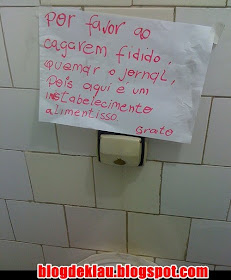 por favor ao
cagarem fidido,
queimar o jornal,
pois aqui e um
estabelecimento
alimentisso.
Grato
blogdeklau.blogspot.com